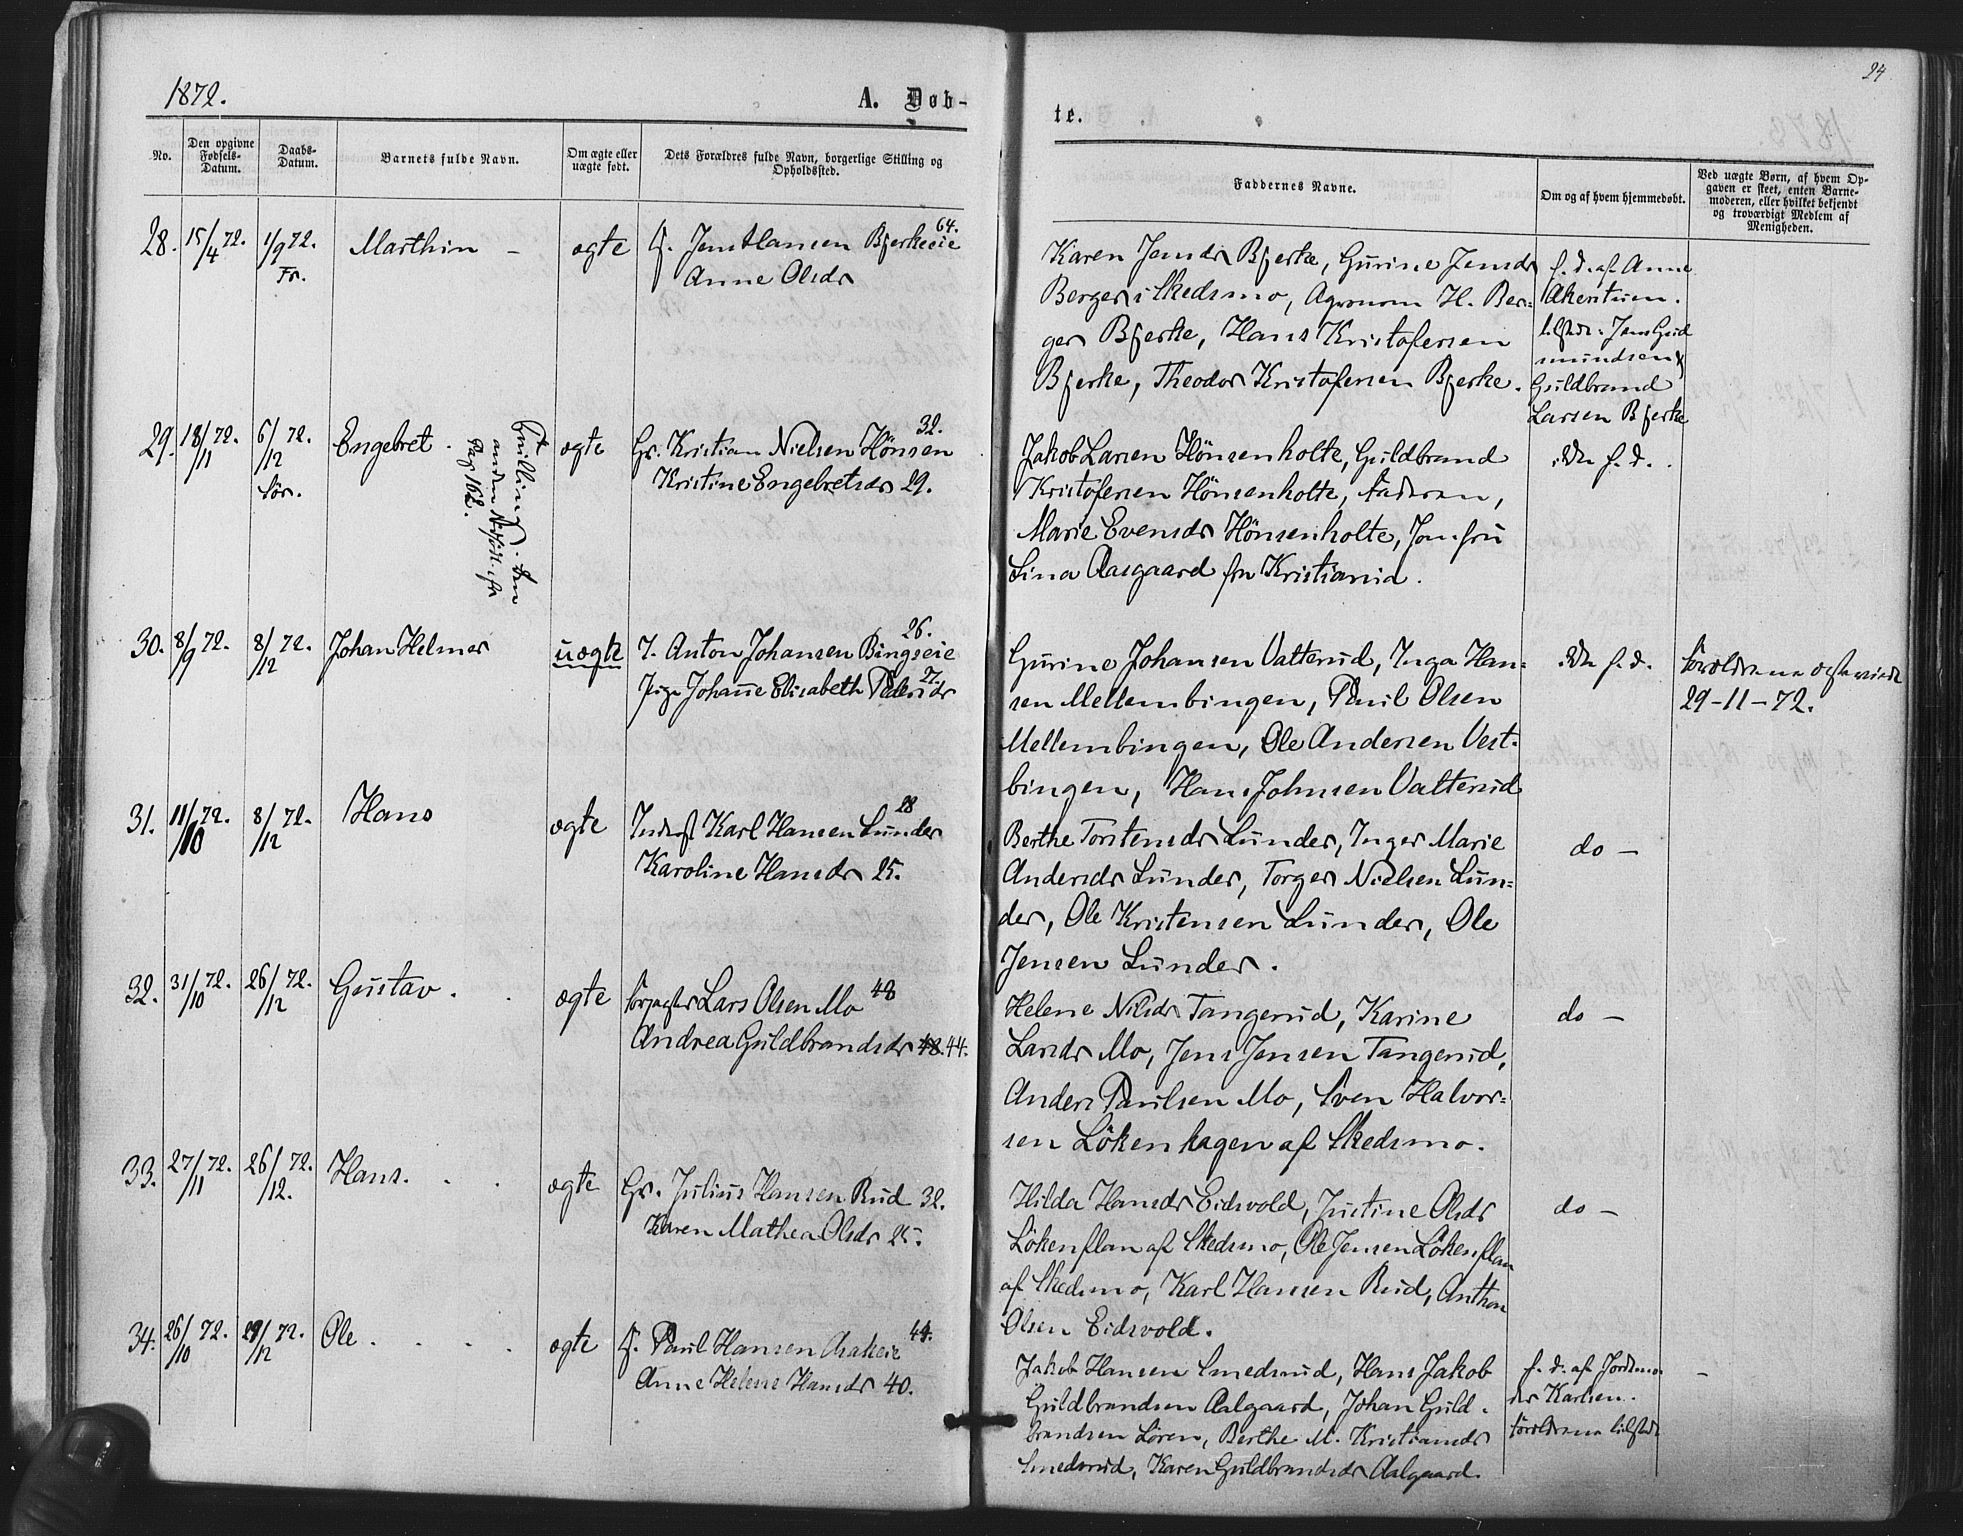 1872.
A. Døb-
No.
Den opgivne Fødsels-Datum.
Daabs-Datum.
Barnets fulde Navn.
Om ægte eller uægte født.
Dets Forældres fulde Navn, borgerlige Stilling og Opholdssted.
28. 15/4 72. 1/9 72. Marthin - ægte Jens Hansen Bjerkeeie 64.
Fr. Anne Olsdr
29. 18/11 72. 6/12 72. Engebret. ægte Gr. Kristian Nielsen Hönsen 32.
Sør. Kristine Engebretsdr 29.
Tvilling. Den
anden
Pag 162.
30. 8/9 72. 8/12 72. Johan Helmer uægte T. Anton Johansen Bingseie 26.
Pige Johanne Elisabeth Pedersdr 27.
31. 11/10 72. 8/12 72. Hans ægte Inderst Karl Hansen Lunder 28
Karoline Hansdr 25.
32. 31/10 72. 26/12 72. Gustav. ægte Forpagter Lars Olsen Mo 48
Andrea Guldbrandsdr 48. 44.
33. 27/11 72. 26/12 72. Hans. ægte Gr. Julius Hansen Rud 32.
Karen Mathea Olsdr 25.
34. 26/10 72. 29/12 72. Ole. ægte Paul Hansen 44.
Anne Helene Hansdr 40.
24
te.
Faddernes Navne.
Om og af hvem hjemmedøbt.
Ved uægte Børn, af hvem Op-
gaven er skeet, enten Barne-
moderen, eller hvilket bekjendt
og troværdigt Medlem af
Menigheden.
Karen Jensdr Bjerke, Gurine Jensdr
Berger i Skedsmo, Agronom H. Ber-
ger Bjerke, Hans Kristofersen
Bjerke, Theodor Kristofersen Bjerke.
h. d. af Anne
Akentun.
tilstede: Jens Gud
mundsen &
Guldbrand
Larsen Bjerke
Jakob Larsen Hönsenholte, Guldbrand
Kristofersen Hönsenholte, Faderen,
Marie Evensdr Hönsenholte, Jomfru
Lina Aasgaard fra Kristiania.
ikke h. d.
Gurine Johansen Valterud, Inga Han-
sen Mellembingen, Paul Olsen
Mellembingen, Ole Andersen Vest-
bingen, Hans Johnsen Valterud
ikke h. d.
Foreldrene
29-11-72.
Berthe Torstensdr Lunder, Inger Marie
Andersdr Lunder, Torger Nielsen Lun-
der, Ole Kristensen Lunder, Ole
Jensen Lunder.
do -
Helene Nilsdr Tangerud, Karine
Larsdr Mo, Jens Jensen Tangerud,
Anders Paulsen Mo, Sven Halvor-
sen Lökenhagen af Skedsmo.
do -
Hilda Hansdr Eidsvold, Justine Olsdr
Lökenflan af Skedsmo, Ole Jensen Lökenflan
af Skedsmo, Karl Hansen Rud, Anthon
Olsen Eidsvold.
do -
Jakob Hansen Smedsrud, Hans Jakob
Guldbrandsen Aalgaard, Johan Guld-
brandsen Lören, Berthe M. Kristiansdr
Smedsrud, Karen Guldbrandsdr Aalgaard.
h. d. af Jordemo-
der Karlsen.
Foreldrene tilstede
-